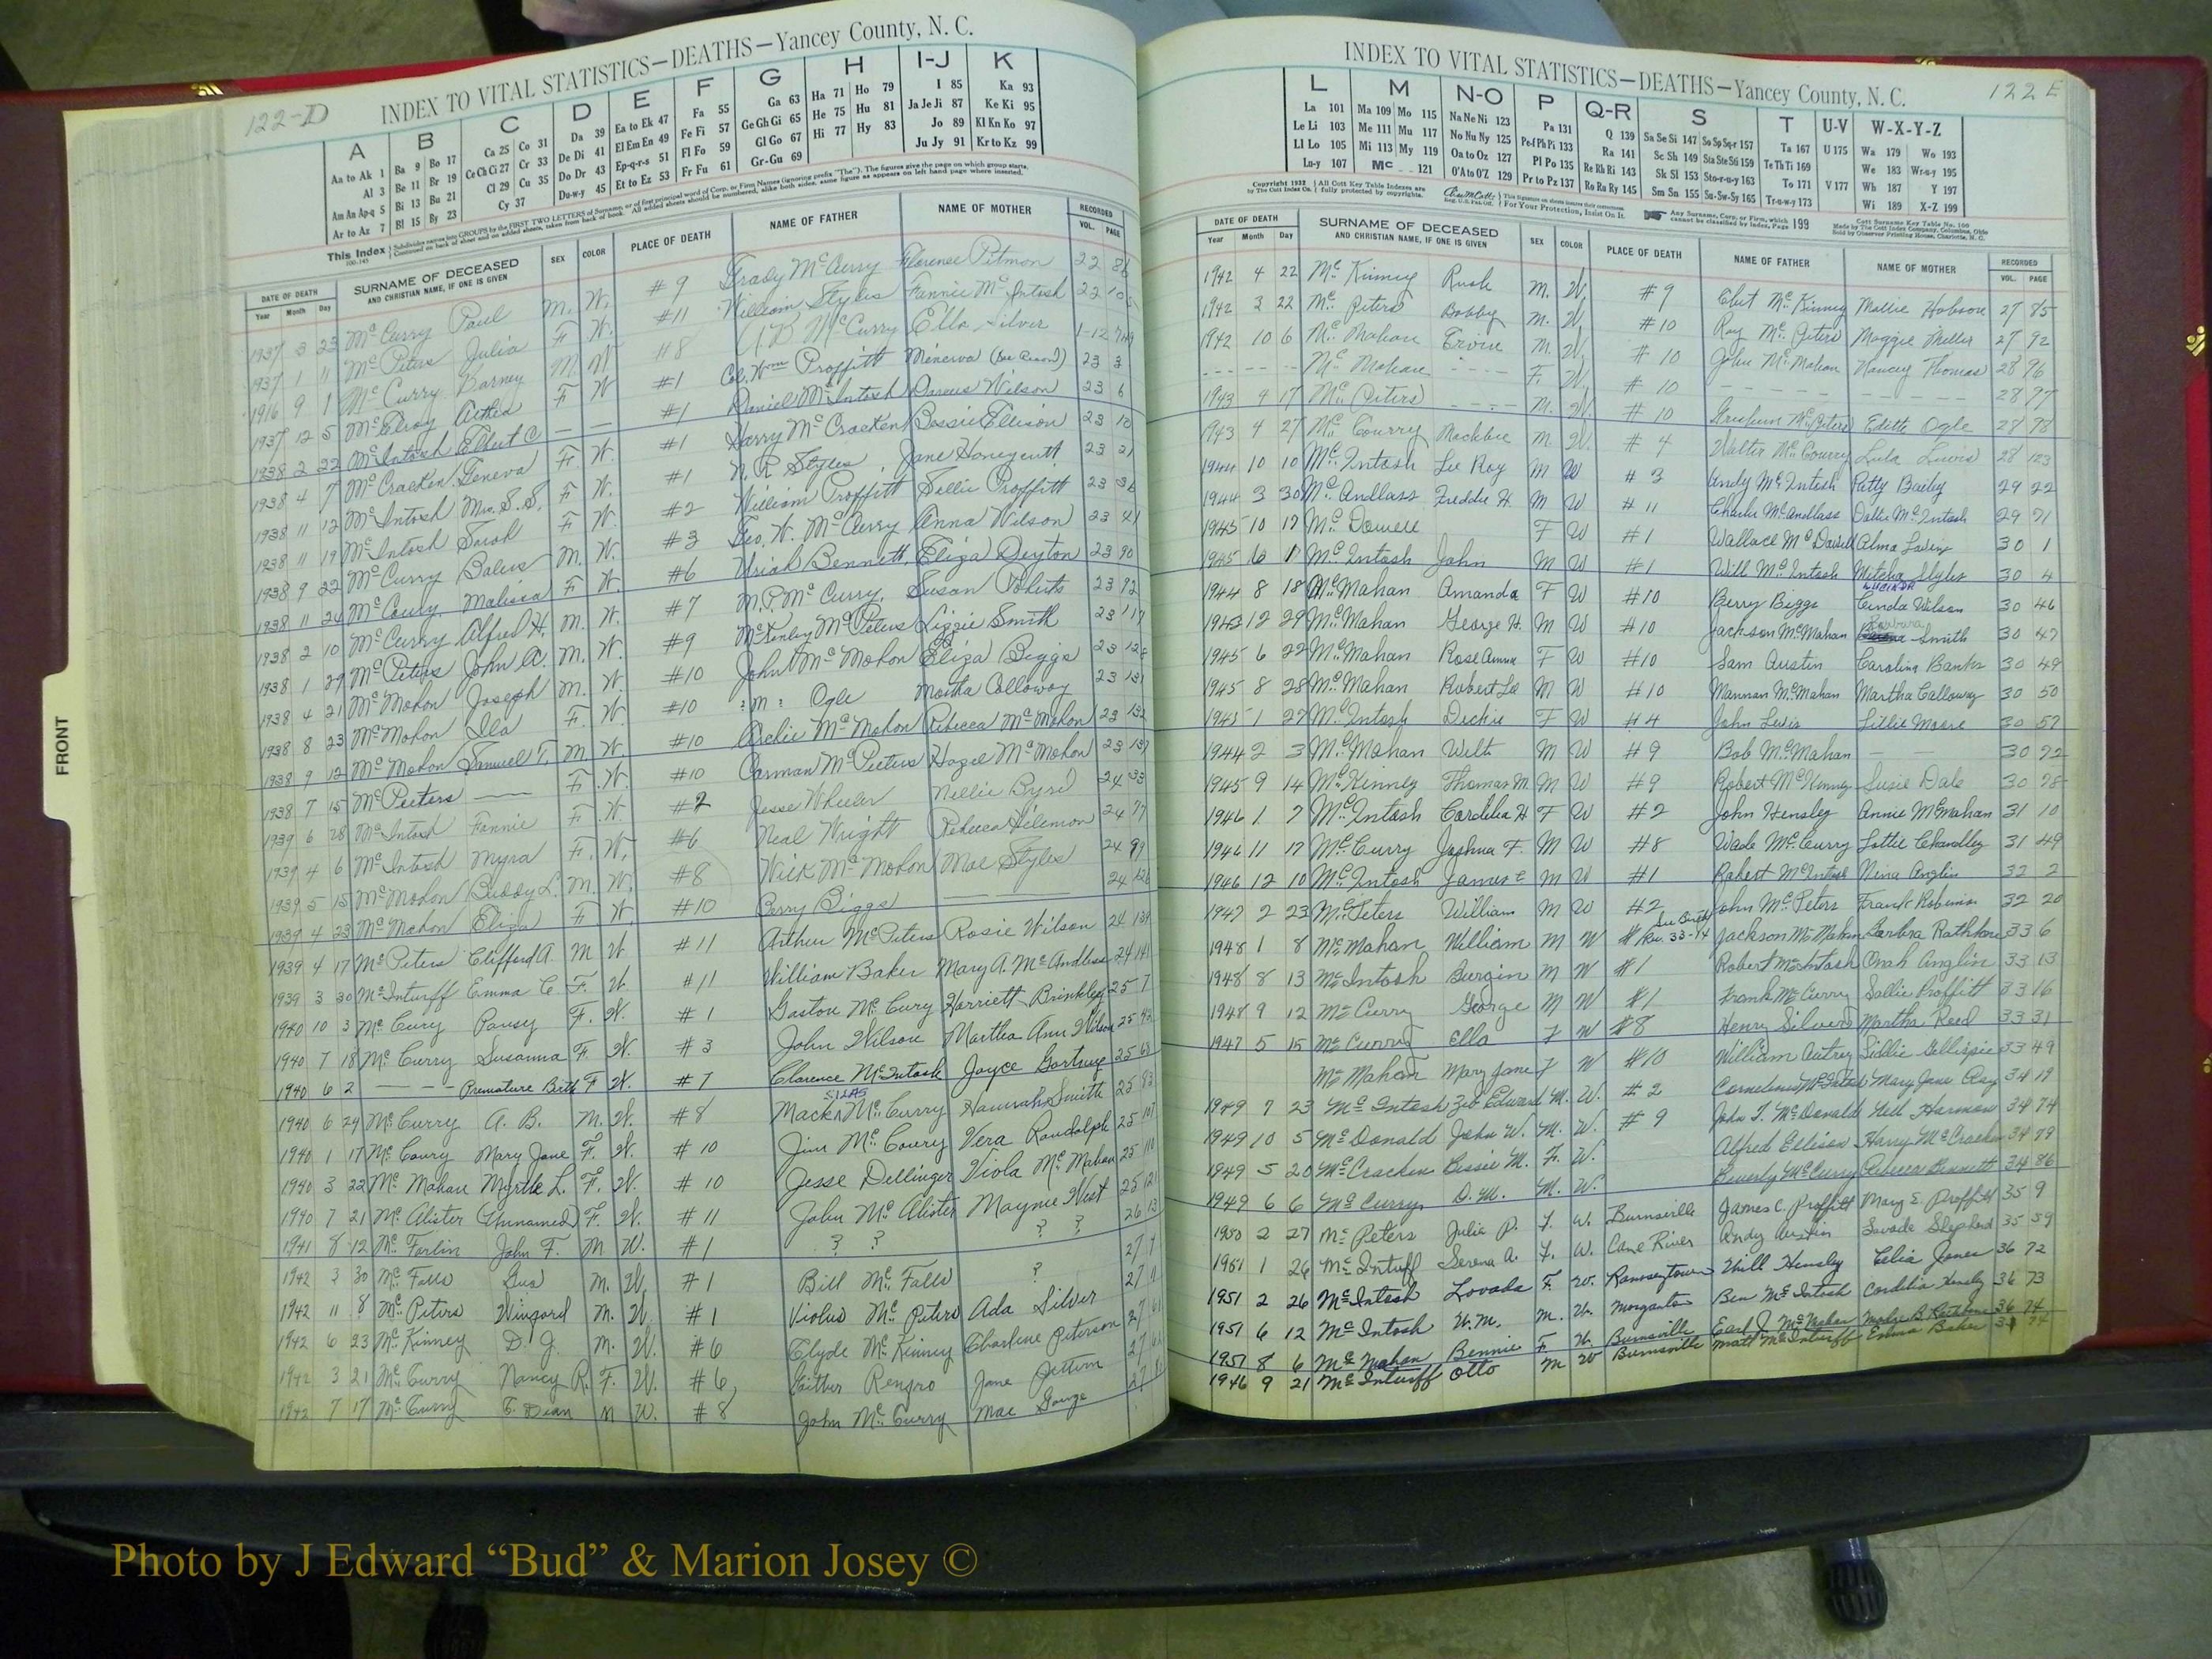 122-D
INDEX TO VITAL STATISTICS—DEATHS—Yancey County, N. C.
A B C D E F G H I-J K
Aa to Ak 1 Ba 9 Bo 17 Ca 25 Co 31 Da 39 Ea to Ek 47 Fa 55 Ga 63 Ha 71 Ho 79 I 85 Ka 93
Al 3 Be 11 Br 19 Ce Ch Ci 27 Cr 33 De Di 41 El Em En 49 Fe Fi 57 Ge Gh Gi 65 He 75 Hu 81 Ja Je Ji 87 Ke Ki 95
Am An Ap-q 5 Bi 13 Bu 21 Cl 29 Cu 35 Do Dr 43 Ep-q-r-s 51 Fl Fo 59 Gl Go 67 Hi 77 Hy 83 Jo 89 Kl Kn Ko 97
Ar to Az 7 Bl 15 By 23 Cy 37 Du-w-y 45 Et to Ez 53 Fr Fu 61 Gr-Gu 69 Ju Jy 91 Kr to Kz 99
This Index
DATE OF DEATH SURNAME OF DECEASED AND CHRISTIAN NAME, IF ONE IS GIVEN SEX COLOR PLACE OF DEATH NAME OF FATHER NAME OF MOTHER RECORDED
Year Month Day VOL. PAGE
1937 3 23 McCurry Paul M. W. #9 Grady McCurry Florence Pitmon 22 86
1937 1 11 McPeters Julia F W. #11 William Styles Fannie McIntosh 22
1916 9 1 McCurry Barney M W #8 McCurry Ella Silver 1-12
1937 12 5 McElroy Aethea F W #1 Col. Wm Proffitt Minerva (See Record) 23 3
1938 2 22 McIntosh Elbert C — — #1 Daniel McIntosh Darcus Wilson 23 6
1938 4 7 McCracken Geneva F. W. #1 Harry McCracken Bessie Ellison 23 10
1938 11 12 McIntosh Mrs. S.S. F W. #1 N. R. Styles Jane Honeycutt 23 21
1938 11 19 McIntosh Sarah F W. #2 William Proffitt Sellie Proffitt 23 36
1938 9 22 McCurry Balus M. W. #3 Geo. W. McCurry Anna Wilson 23 41
1938 11 24 McCoury Malissa F W. #6 Uriah Bennett Eliza Deyton 23 90
1938 2 10 McCurry Alfred H. M. W. #7 M. P. McCurry Susan Roberts 23 92
1938 1 29 McPeters John A. M. W. #9 McKinley McPeters Lizzie Smith 23 117
1938 4 21 McMohon Joseph M. W. #10 John McMohon Eliza Biggs 23
1938 8 23 McMohon Ila F. W. #10 Ogle Martha Calloway 23 131
1938 9 12 McMohon Samuel T. M. W. #10 Archie McMohon Rebecca McMohon 23 132
1938 7 15 McPeters — F. W. #10 Carman McPeters Hazel McMohon 23 137
1939 6 28 McIntosh Fannie F. W. #2 Jesse Wheeler Nellie Byrd 24 33
1939 4 6 McIntosh Myra F. W. #6 Neal Wright Rebecca Silemon 24 77
1939 5 15 McMohon Buddy L. M. W. #8 Wick McMohon Mae Styles 24 99
1939 4 23 McMahon Eliza F W. #10 Berry Biggs —— 24 126
1939 4 17 McPeters Clifford A. M W #11 Arthur McPeters Rosie Wilson 24 139
1939 3 30 McInturff Emma C. F. W. #11 William Baker Mary A. McAndless 24 141
1940 10 3 McCury Pansy F. W. #1 Gaston McCury Harriett Brinkley 25 7
1940 7 18 McCurry Susanna F. W. #3 John Wilson Martha Ann Wilson 25 42
1940 6 2 — — — Premature Birth F. W. #7 Clarence McIntosh Joyce 25 68
SILAS
1940 6 29 McCurry A. B. M. W. #8 Mack McCurry Hannah Smith 25 83
1940 1 17 McCoury Mary Jane F. W. #10 Jim McCoury Vera Randolph 25 107
1940 3 22 McMahan Myrtle L. F. W. #10 Jesse Dellinger Viola McMahan 25 110
1940 7 21 McAlister Unnamed F. W. #11 John McAlister Mayme West 25 121
1941 8 12 McFarlin John F. M W. #1 ? ? ? ? 26 13
1942 3 30 McFalls Gus M. W. #1 Bill McFalls ? 27 7
1942 11 8 McPeters Wingord M. W. #1 Violus McPeters Ada Silver 27 11
1942 6 23 McKinney D. J. M. W. #6 Clyde McKinney Charlene Peterson 27 61
1942 3 21 McCurry Nancy R. F. W. #6 Renfro Jane 27
1942 7 17 McCurry E. Dean M W. #8 John McCurry Mae Gouge 27
FRONT
INDEX TO VITAL STATISTICS—DEATHS—Yancey County, N. C.
122 E
L M N-O P Q-R S T U-V W-X-Y-Z
La 101 Ma 109 Mo 115 Na Ne Ni 123 Pa 131 Q 139 Sa Se Si 147 So Sp Sq-r 157 Ta 167 U 175 Wa 179 Wo 193
Le Li 103 Me 111 Mu 117 No Nu Ny 125 Pe-f Ph Pi 133 Ra 141 Sc Sh 149 Sta Ste Sti 159 Te Th Ti 169 We 183 Wr-u-y 195
Ll Lo 105 Mi 113 My 119 Oa to Oz 127 Pl Po 135 Re Rh Ri 143 Sk Sl 153 Sto-r-u-y 163 To 171 V 177 Wh 187 Y 197
Lu-y 107 Mc 121 O'A to O'Z 129 Pr to Pz 137 Ro Ru Ry 145 Sm Sn 155 Su-Sw-Sy 165 Tr-u-w-y 173 Wi 189 X-Z 199
Copyright 1932 All Cott Key Table Indexes are fully protected by copyrights. For Your Protection, Insist On It. Any Surname, Corp. or Firm, which cannot be classified by Index, Page 199
DATE OF DEATH SURNAME OF DECEASED AND CHRISTIAN NAME, IF ONE IS GIVEN SEX COLOR PLACE OF DEATH NAME OF FATHER NAME OF MOTHER RECORDED
Year Month Day VOL. PAGE
1942 4 22 McKinney Rush M. W. #9 Clint McKinney Mollie Hobson 27 85
1942 3 22 McPeters Bobby M. W. #10 Roy McPeters Maggie Miller 27 92
1942 10 6 McMahan Ervin M. W. #10 John McMahan Nancy Thomas 28 96
McMahan F. W. #10 28 97
1943 9 17 McPeters M. W. #10 McPeters Edith Ogle 28 98
1943 4 27 McCourry Mackbee M W. #4 Walter McCourry Lula Lewis 28 123
1944 10 10 McIntosh Lee Roy M W #3 Andy McIntosh Patty Bailey 29 22
1944 3 30 McAndlass Freddie H. M W #11 Charlie McAndlass Dollie McIntosh 29 71
1945 10 17 McDowell F W #1 Wallace McDowell Alma 30 1
1945 6 1 McIntosh John M W #1 Will McIntosh Styles 30 4
LUCINDA
1944 8 18 McMahan Amanda F W #10 Berry Biggs Cinda Wilson 30 46
Barbara
12 29 McMahan George H. M W #10 Jackson McMahan Smith 30 47
1945 6 22 McMahan Rose Anna F W #10 Sam Austin Carolina Banks 30 49
1945 8 28 McMahan Robert Lee M W #10 Mannan McMahan Martha Calloway 30 50
1945 1 27 McIntosh Dickie F W #4 John Lewis Lillie Moore 30 57
1944 2 3 McMahan Wilt M W #9 Bob McMahan — — 30 72
1945 9 14 McKinney Thomas M. M W #9 Robert McKinney Susie Dale 30 78
1946 1 7 McIntosh Cordelia H F W #2 John Hensley Annie McMahan 31 10
1946 11 17 McCurry Joshua F. M W #8 Wade McCurry Lottie Chandley 31 49
1946 12 10 McIntosh James E M W #1 Robert McIntosh Nina Anglin 32 2
1947 2 23 McPeters William M W #2 John McPeters Frank Robinson 32 20
See Birth
1948 1 8 McMahan William M W # Rec. 33-74 Jackson McMahan Barbra Rathbone 33 6
1948 8 13 McIntosh Burgin M W #1 Robert McIntosh Onah Anglin 33 13
1948 9 12 McCurry George M W #1 Frank McCurry Sallie Proffitt 33 16
1947 5 15 McCurry Ella F W #8 Henry Silvers Martha Reed 33 31
McMahan Mary Jane F W #10 William Autrey Siddie Gillispie 33 49
1949 7 23 McIntosh Zeb Edward M. W. #2 Cornelius McIntosh Mary Jane Ray 34 19
1949 10 5 McDonald John W. M. W. #9 John T. McDonald Nell Harmon 34 74
1949 5 20 McCracken Bessie M. F. W. Alfred Ellison Harry McCracken 34 79
1949 6 6 McCurry D. M. M. W. Beverly McCurry Rebecca Bennett 34 86
1950 2 27 McPeters Julia P. F. W. Burnsville James C. Proffitt Mary E. Proffitt 35 9
1951 1 26 McIntuff Serena A. F. W. Cane River Andy Austin Savada Shepherd 35 59
1951 2 26 McIntosh Lovada F. W. Ramseytown Will Hensley Celia Jones 36 72
1951 6 12 McIntosh W.M. M. W. Morganton Ben McIntosh Cordelia Hensley 36 73
1951 8 6 McMahan Bennie F W. Burnsville Earl J. McMahan B. Rathbone 36 74
1946 9 21 McInturff Otto M W Burnsville Matt McInturff Emma Baker 31 74
Photo by J Edward “Bud” & Marion Josey ©